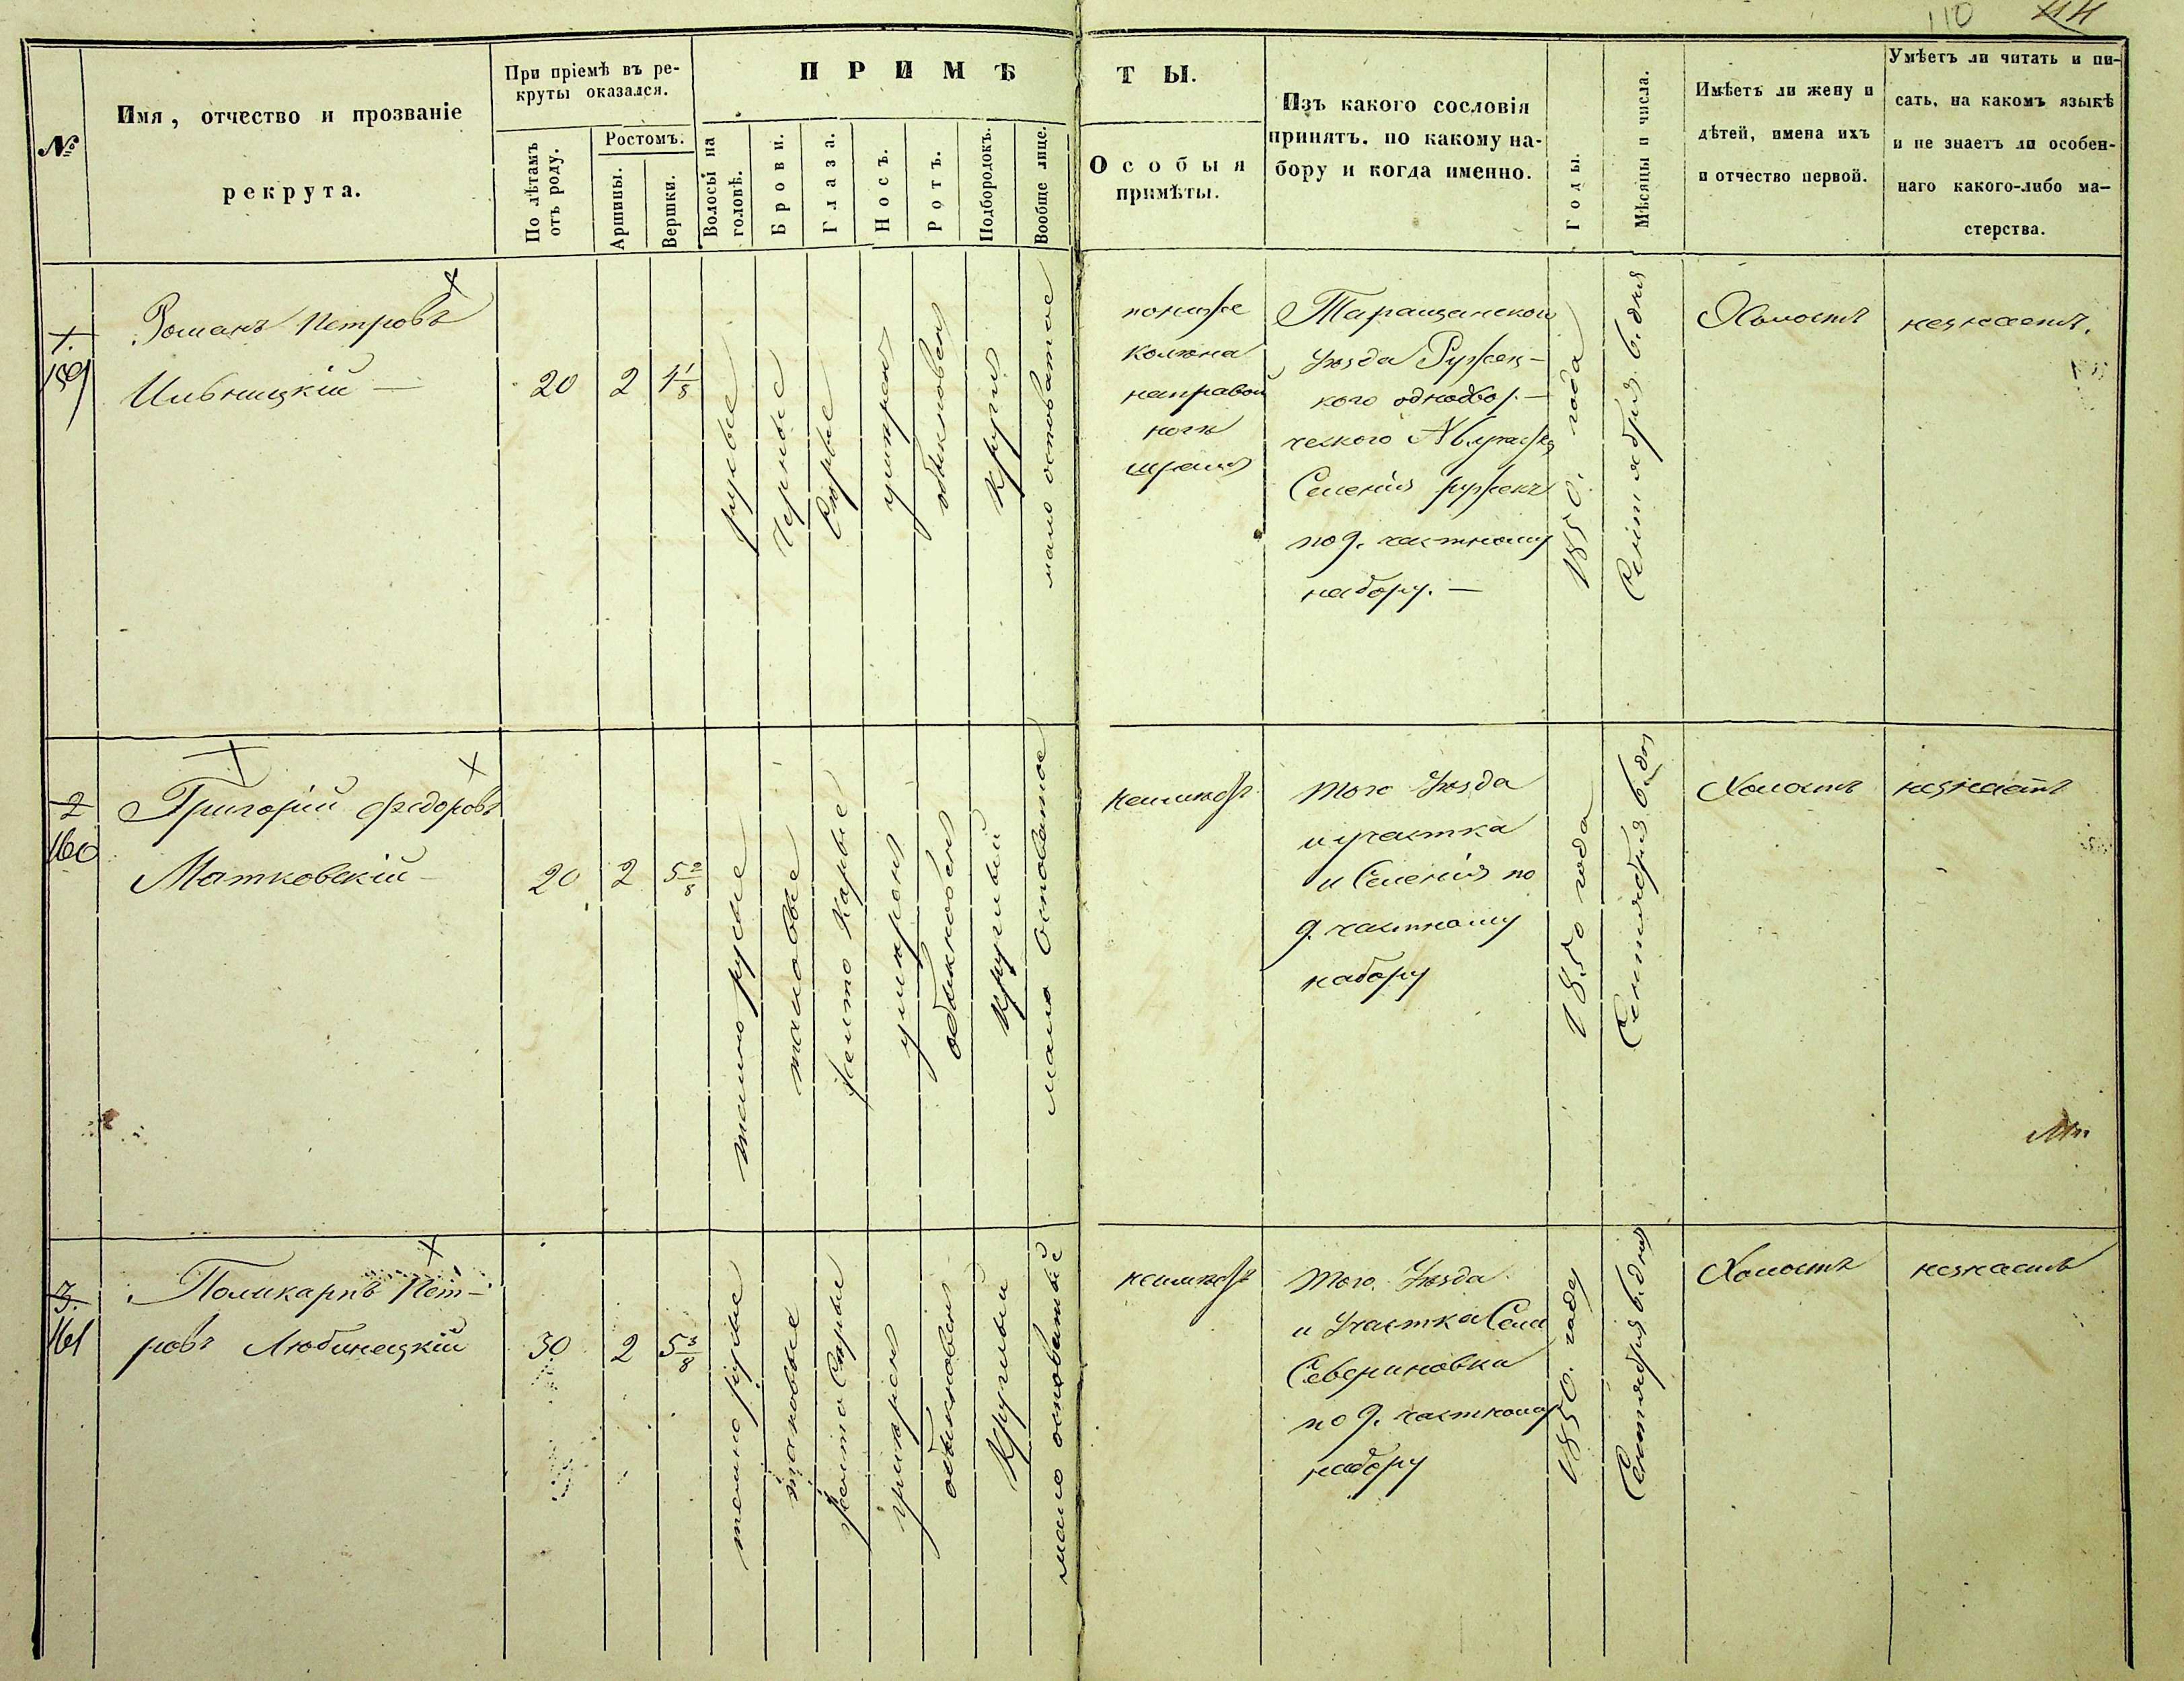 110
№
Имя, отчество и прозваніе
рекрута.
При пріемѣ въ ре-
круты оказался.
По лѣтамъ
отъ роду.
Ростомъ.
Аршины.
Вершки.
ПРИМѢ
ТЫ.
Волосы на
головѣ.
Брови.
Глаза.
Носъ.
Ротъ.
Подбородокъ.
Вообще лице.
Особыя
примѣты.
Изъ какого сословія
принятъ. по какому на-
бору и когда именно.
Годы.
Мѣсяцы и числа.
Имѣетъ ли жену и
дѣтей, имена ихъ
и отчество первой.
Умѣетъ ли читать и пи-
сать, на какомъ языкѣ
и не знаетъ ли особен-
наго какого-либо ма-
стерства.
1.
159
Романъ Петровъ
Ильницкій —
20
2
4 1/8
русые
Черные
Сѣрые
умѣрен
обикновен
Кругл
мало осповатое
пониже
колѣна
направой
ногѣ
шрамъ
Таращанской
уѣзда Ружен-
кого однодвор-
ческого
Селенія Ружекъ
по 9. частному
набору. —
1850. года
Сентября 6. дня
Холостъ
незнаетъ.
2
160
Григорій Федоровъ
Матковскій —
20
2
5 2/8
темно русые
таковые
желто Карые
умѣрен
обикновен
Круглый
мало Осповатое
неимѣетъ
того Уѣзда
и участка
и Селенія по
9. частному
набору
1850 года
Сентября 6. дня
Холостъ
незнаетъ
3.
161
Поликарпъ Пет-
ровъ Любинецкій
30
2
5 3/8
темно русые
таковые
желто Сѣрые
умѣрен
обикновен
Круглый
мало осповатые
неимѣетъ
того Уѣзда
и Участка Села
Севериновки
по 9. частному
набору
1850. года
Сентября 6. дня
Холостъ
незнаетъ